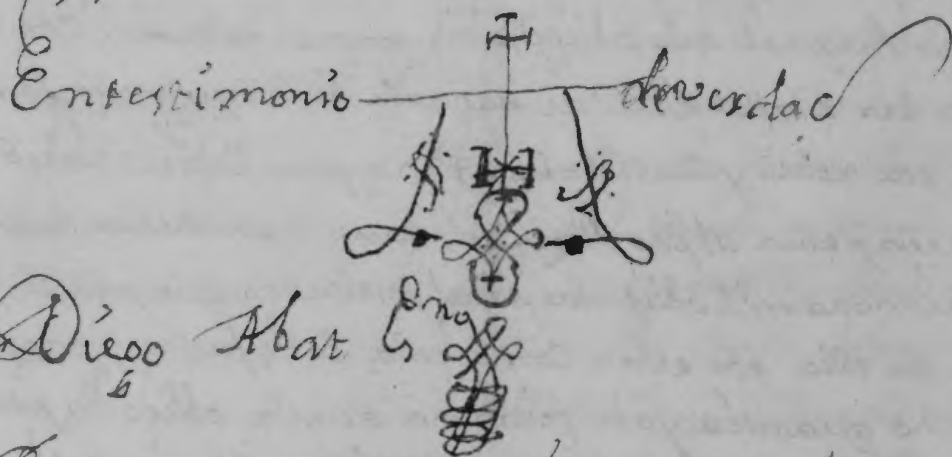 En testimonio de verdad
Diego Abat Esno